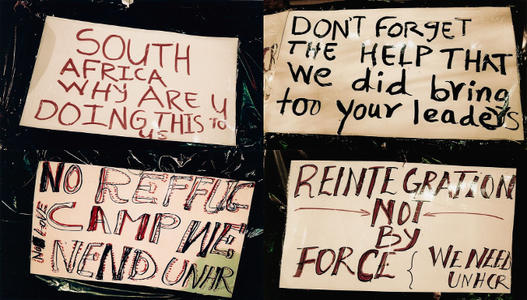 SOUTH
AFRICA
WHY ARE U
DOING THIS TO
US
DON'T FORGET
THE HELP THAT
We did bring
too your leaders
NO REFFUG
CAMP WE,
NEND UNHR
REINTEGRATION
NOT
BY
FORCE { WE NEED
UNHCR